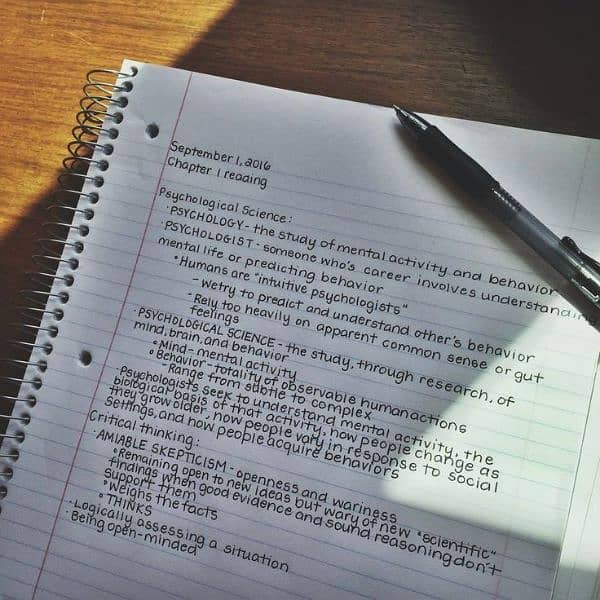 September 1, 2016
Chapter 1 reading
Psychological Science:
· PSYCHOLOGY - the study of mental activity and behavior
· PSYCHOLOGIST - someone who's career involves understanding
mental life or predicting behavior
° Humans are "intuitive psychologists"
- We try to predict and understand other's behavior
- Rely too heavily on apparent common sense or gut
feelings
· PSYCHOLOGICAL SCIENCE - the study, through research, of
mind, brain, and behavior
° Mind - mental activity
° Behavior - totality of observable human actions
- Range from subtle to complex
· Psychologists seek to understand mental activity, the
biological basis of that activity, how people change as
they grow older, how people vary in response to social
settings, and how people acquire behaviors
Critical thinking:
· AMIABLE SKEPTICISM - openness and wariness
° Remaining open to new ideas but wary of new "scientific"
findings when good evidence and sound reasoning don't
support them
° Weighs the facts
° THINKS
· Logically assessing a situation
· Being open-minded